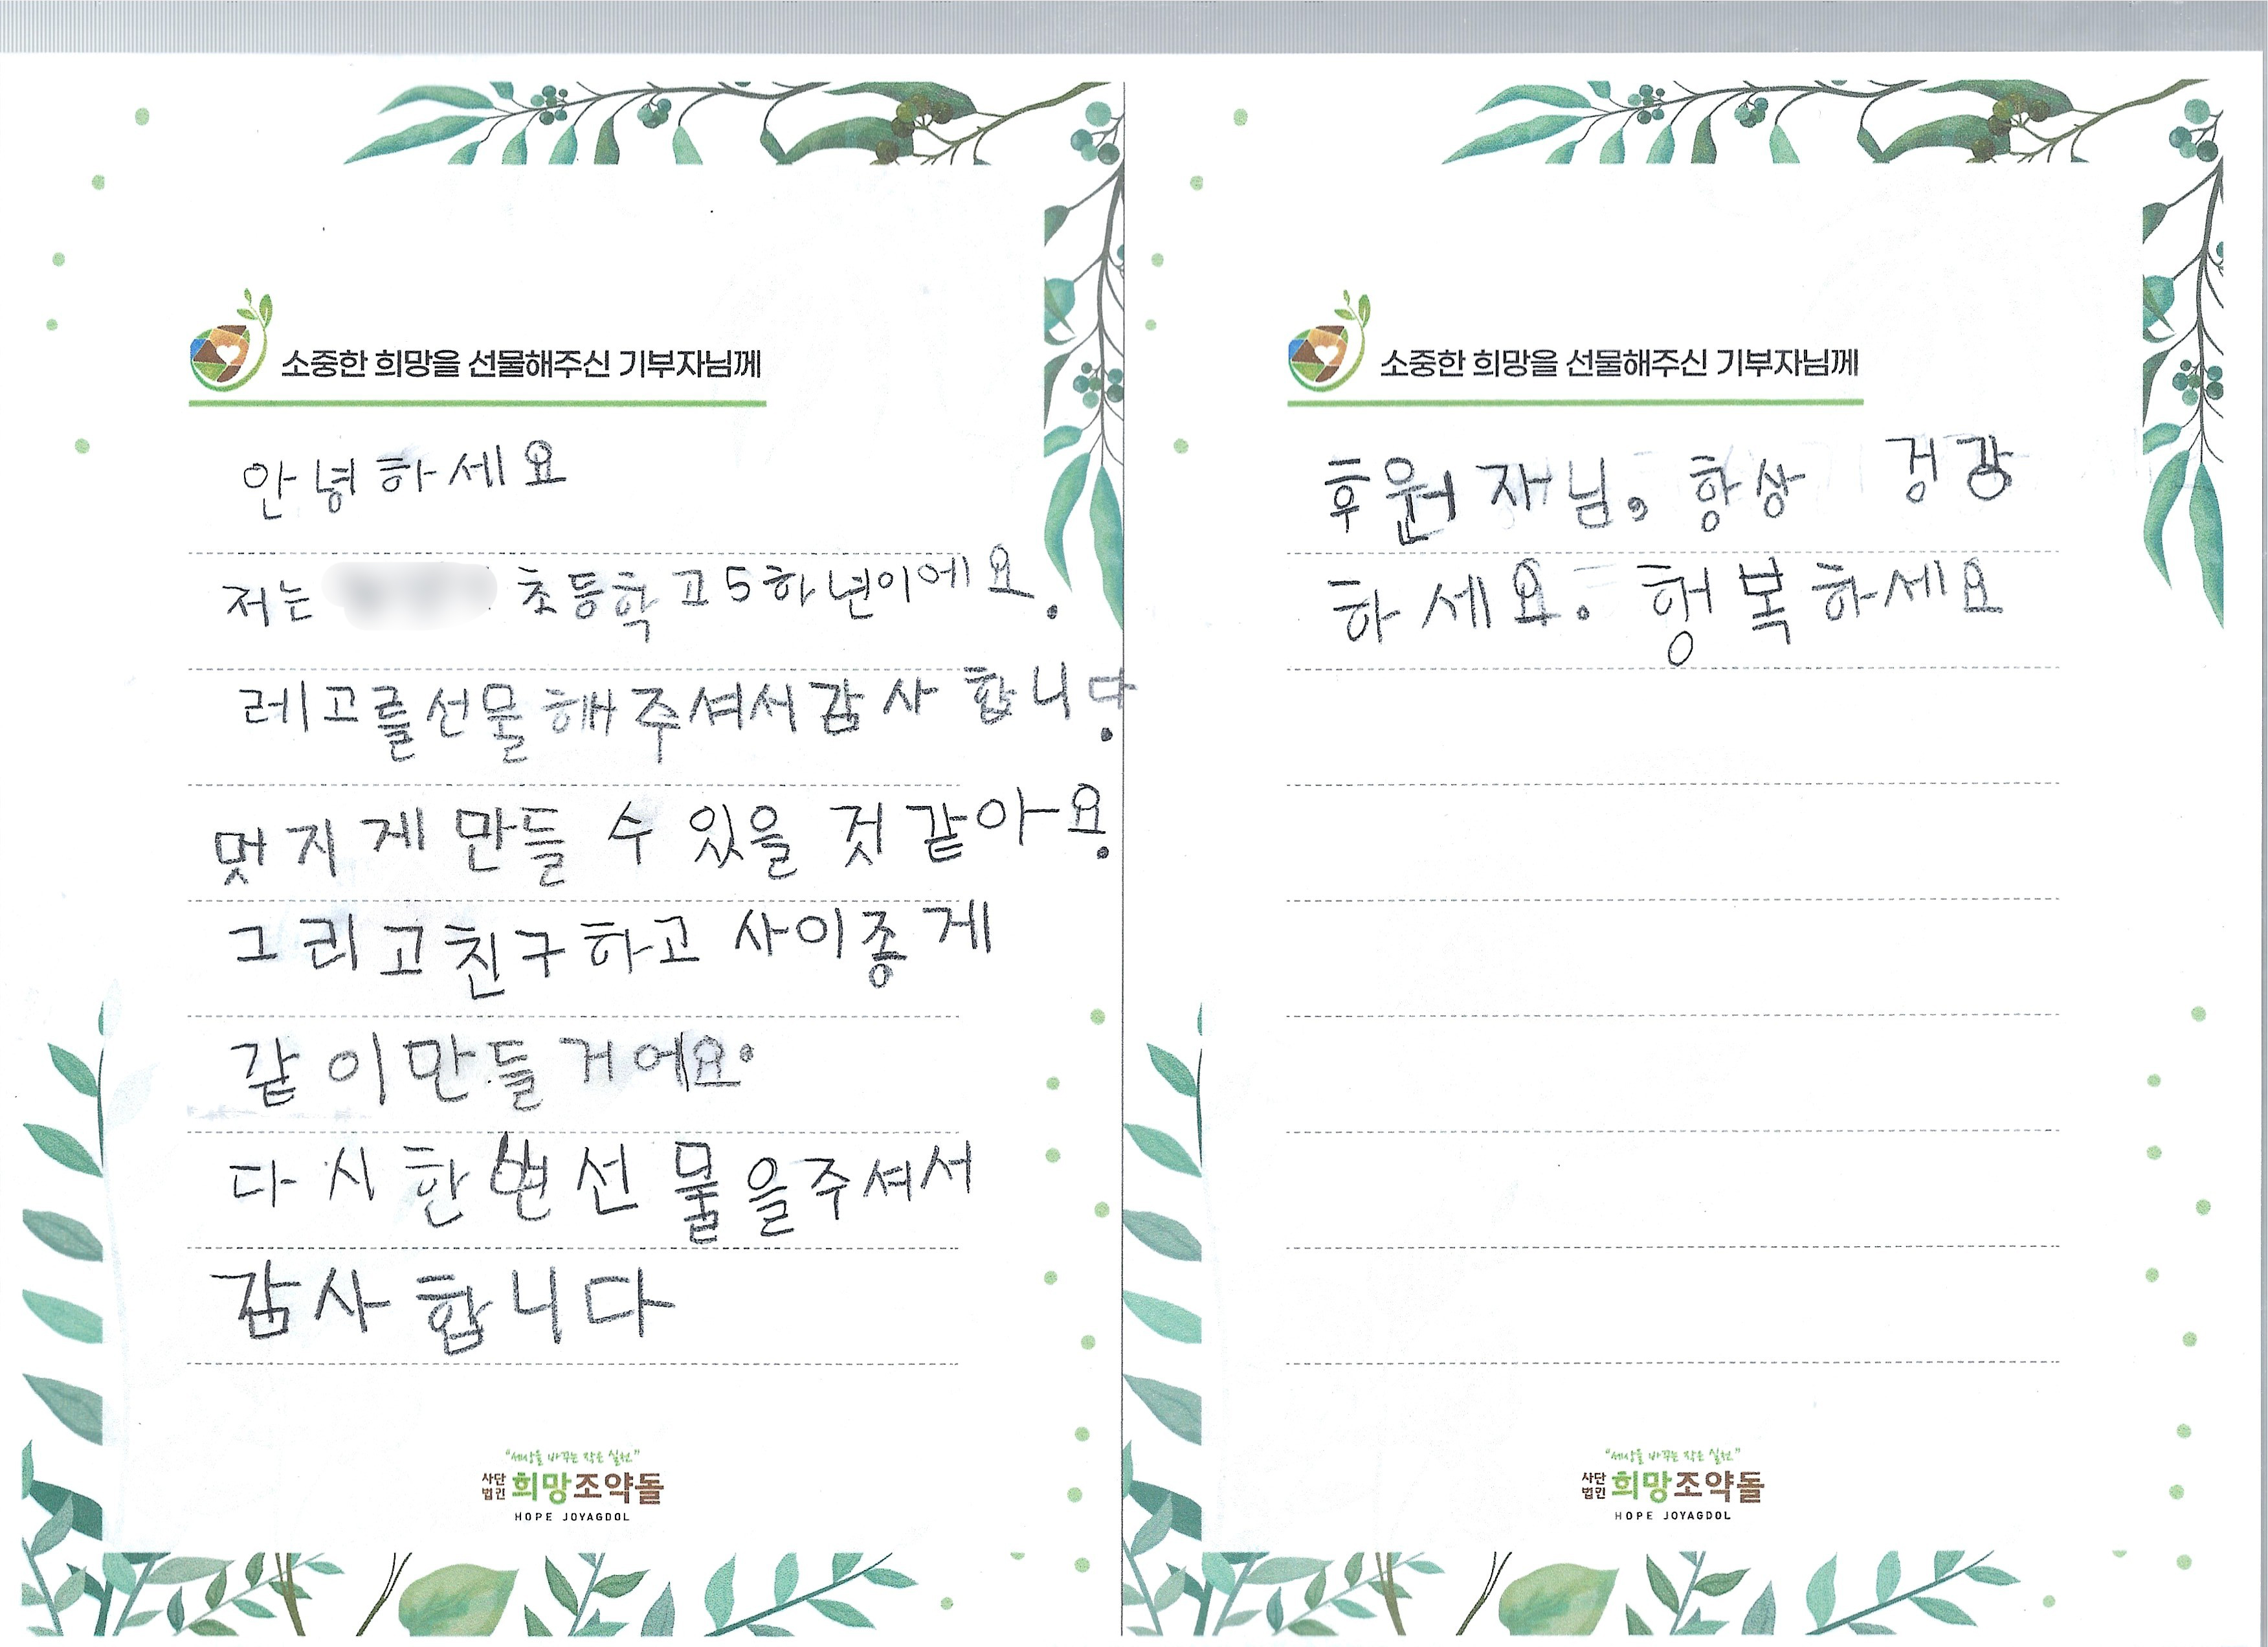 소중한 희망을 선물해주신 기부자님께
안녕하세요
저는 초등학교 5하년이에요.
레고를 선물해주셔서 감사합니다.
멋지게 만들 수 있을 것 같아요.
그리고 친구하고 사이종게
같이 만들거에요.
다시 한번 선물을 주셔서
감사합니다
"세상을 바꾸는 작은 실천"
사단법인 희망조약돌
HOPE JOYAGDOL
소중한 희망을 선물해주신 기부자님께
후원자님. 항상 겅강
하세요. 헝복하세요
"세상을 바꾸는 작은 실천"
사단법인 희망조약돌
HOPE JOYAGDOL